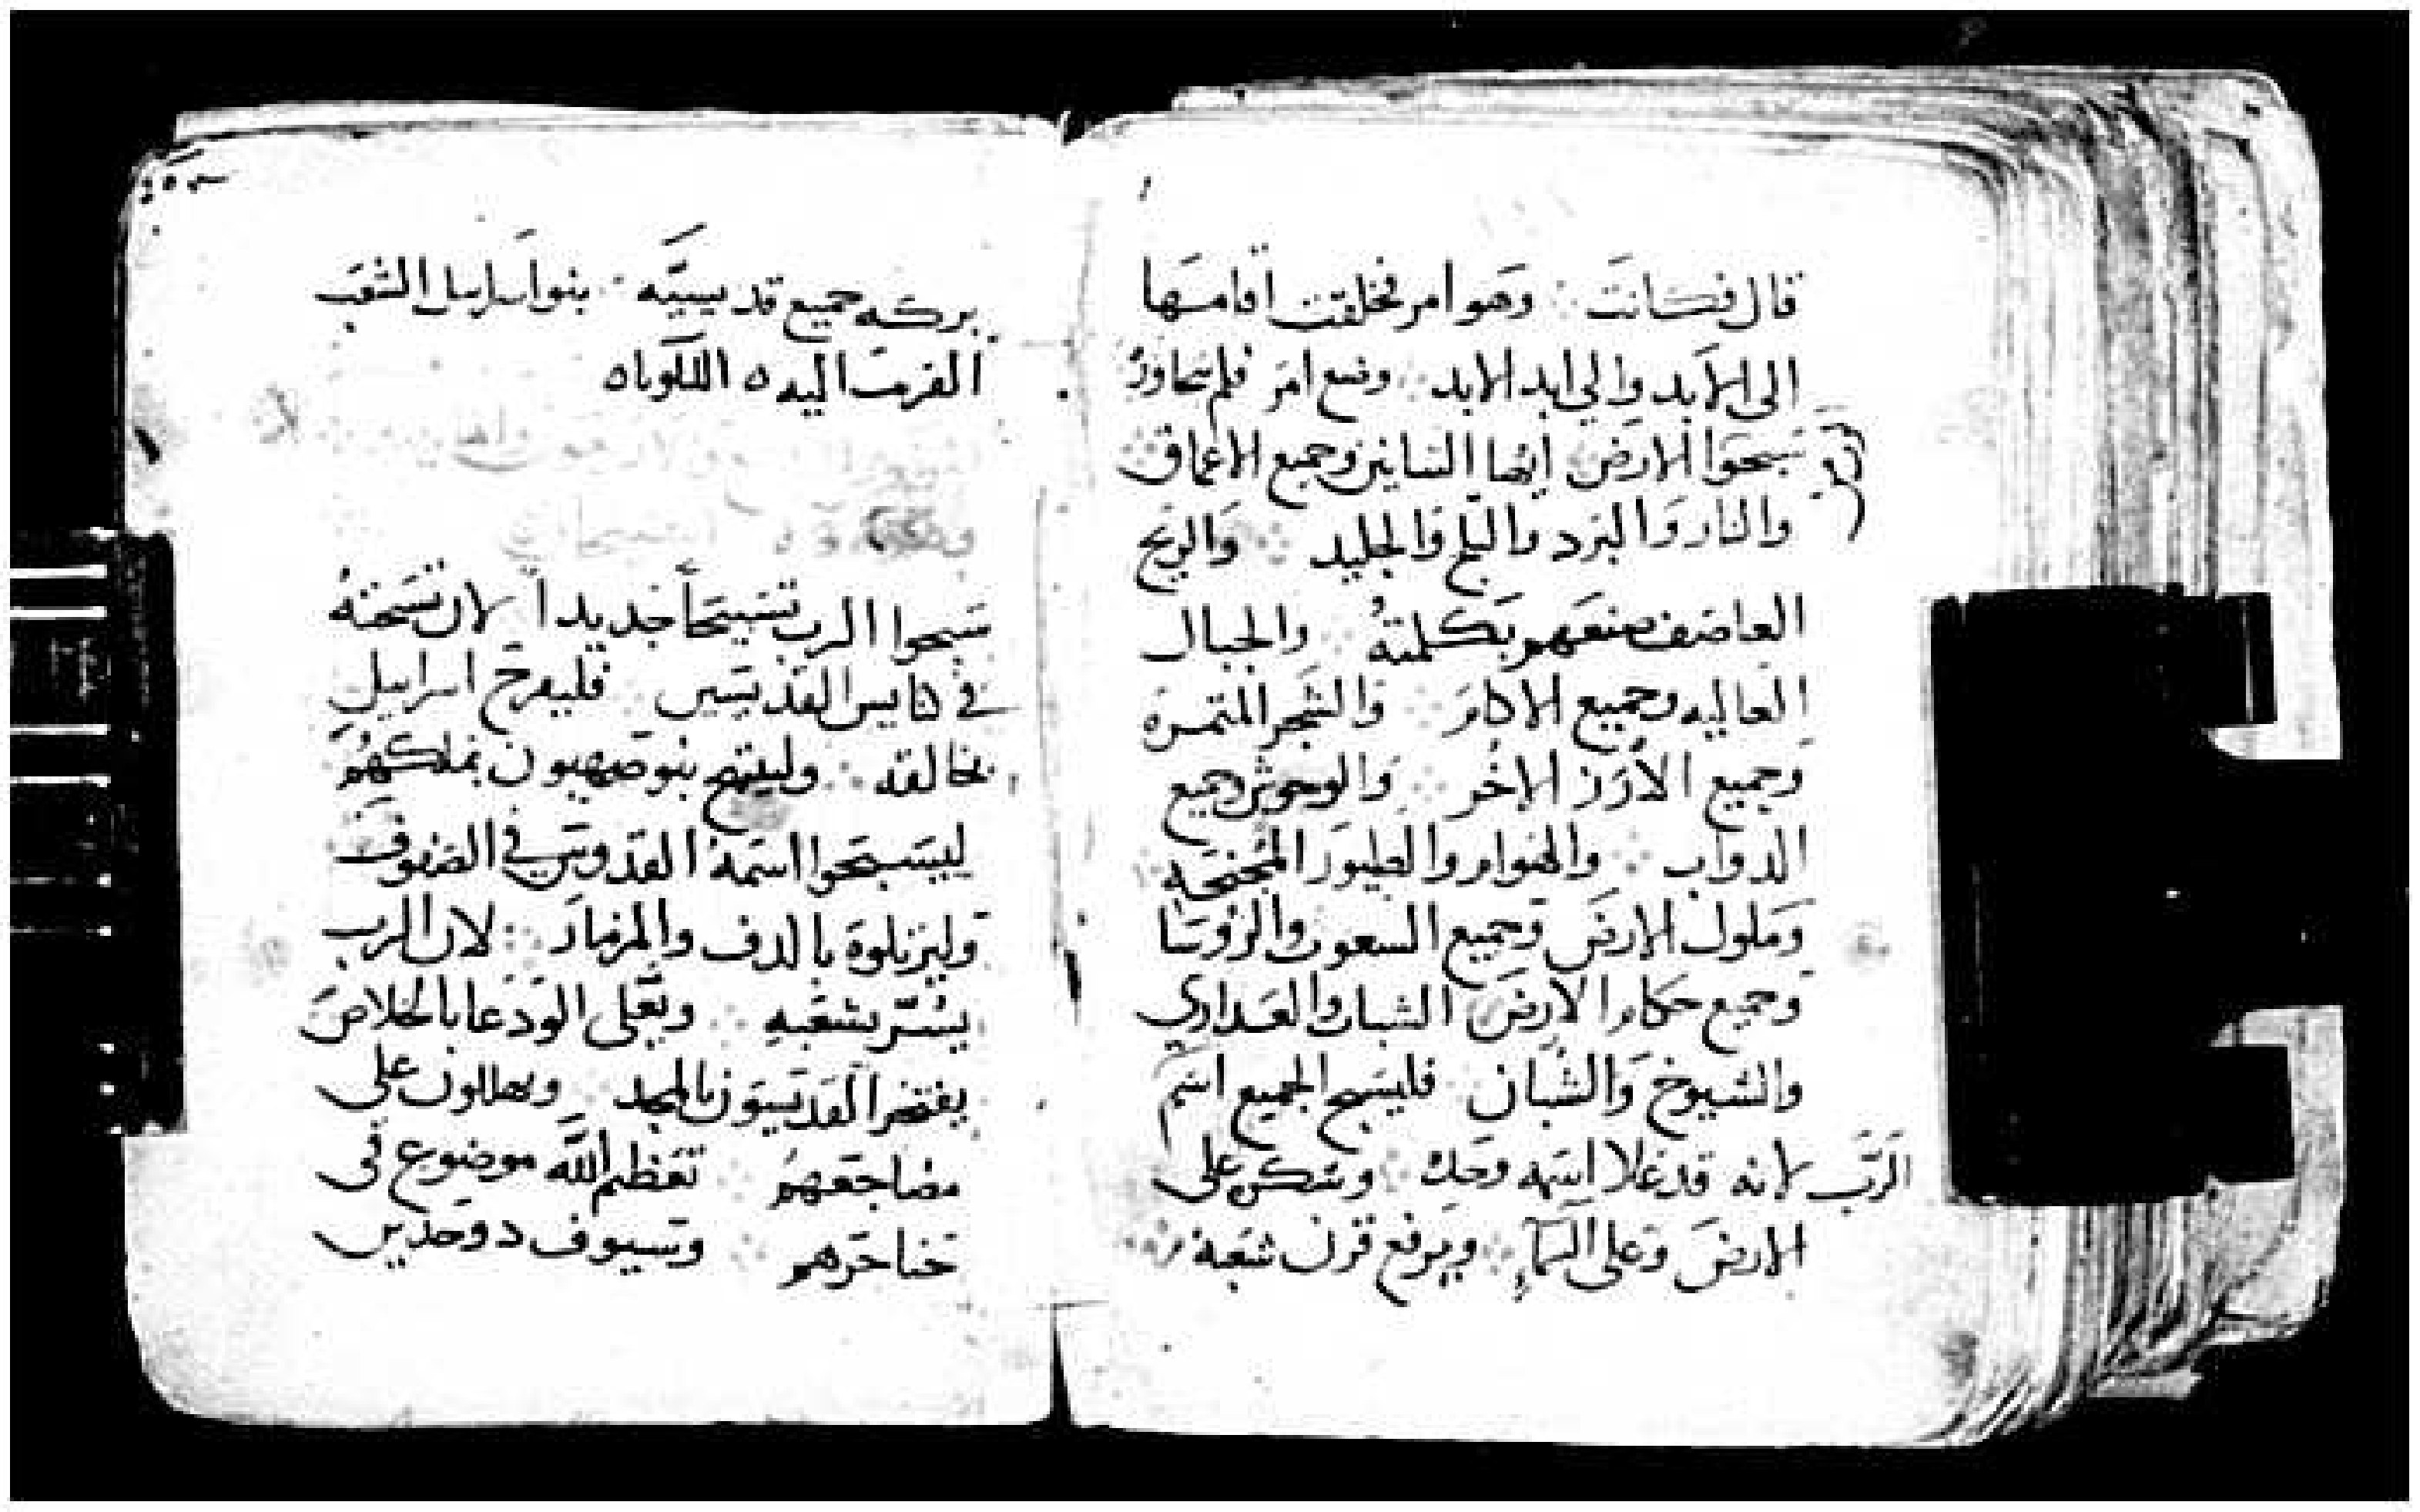 قال فكانت وهو امر فخلقت اقامها
الى الابد والي ابد الابد وضع امر فلم تتجاوزه
سبحوا الارض ايها التنانين وجميع الاعماق
والنار والبرد والثلج والجليد والريح
العاصف صنعهم بكلمته والجبال
العاليه وجميع الاكام والشجر المثمرة
وجميع الارز الاخر والوحوش وجميع
الدواب والهوام والطيور المجنحه
وملوك الارض وجميع الشعوب والروسا
وجميع حكام الارض الشباب والعداري
والشيوخ والشبان فليسبح الجميع اسم
الرب لانه قد علا اسمه وحده وشكره على
الارض وعلى السماء ويرفع قرن شعبه
بركه جميع قديسيه بنو اسراييل الشعب
القريب اليه الللوياه
سبحوا الرب تسبيحا جديدا لان تسبحته
في كنايس القديسين فليفرح اسراييل
بخالقه وليبتهج بنو صهيون بملكهم
ليسبحوا اسمه القدوس في الصفوف
وليرتلوه بالدف والمزمار لان الرب
يسر بشعبه ويعلى الودعا بالخلاص
يفتخر القديسيون بالمجد ويهللون على
مضاجعهم تعظم الله موضوع في
حناجرهم وسيوف دو حدين